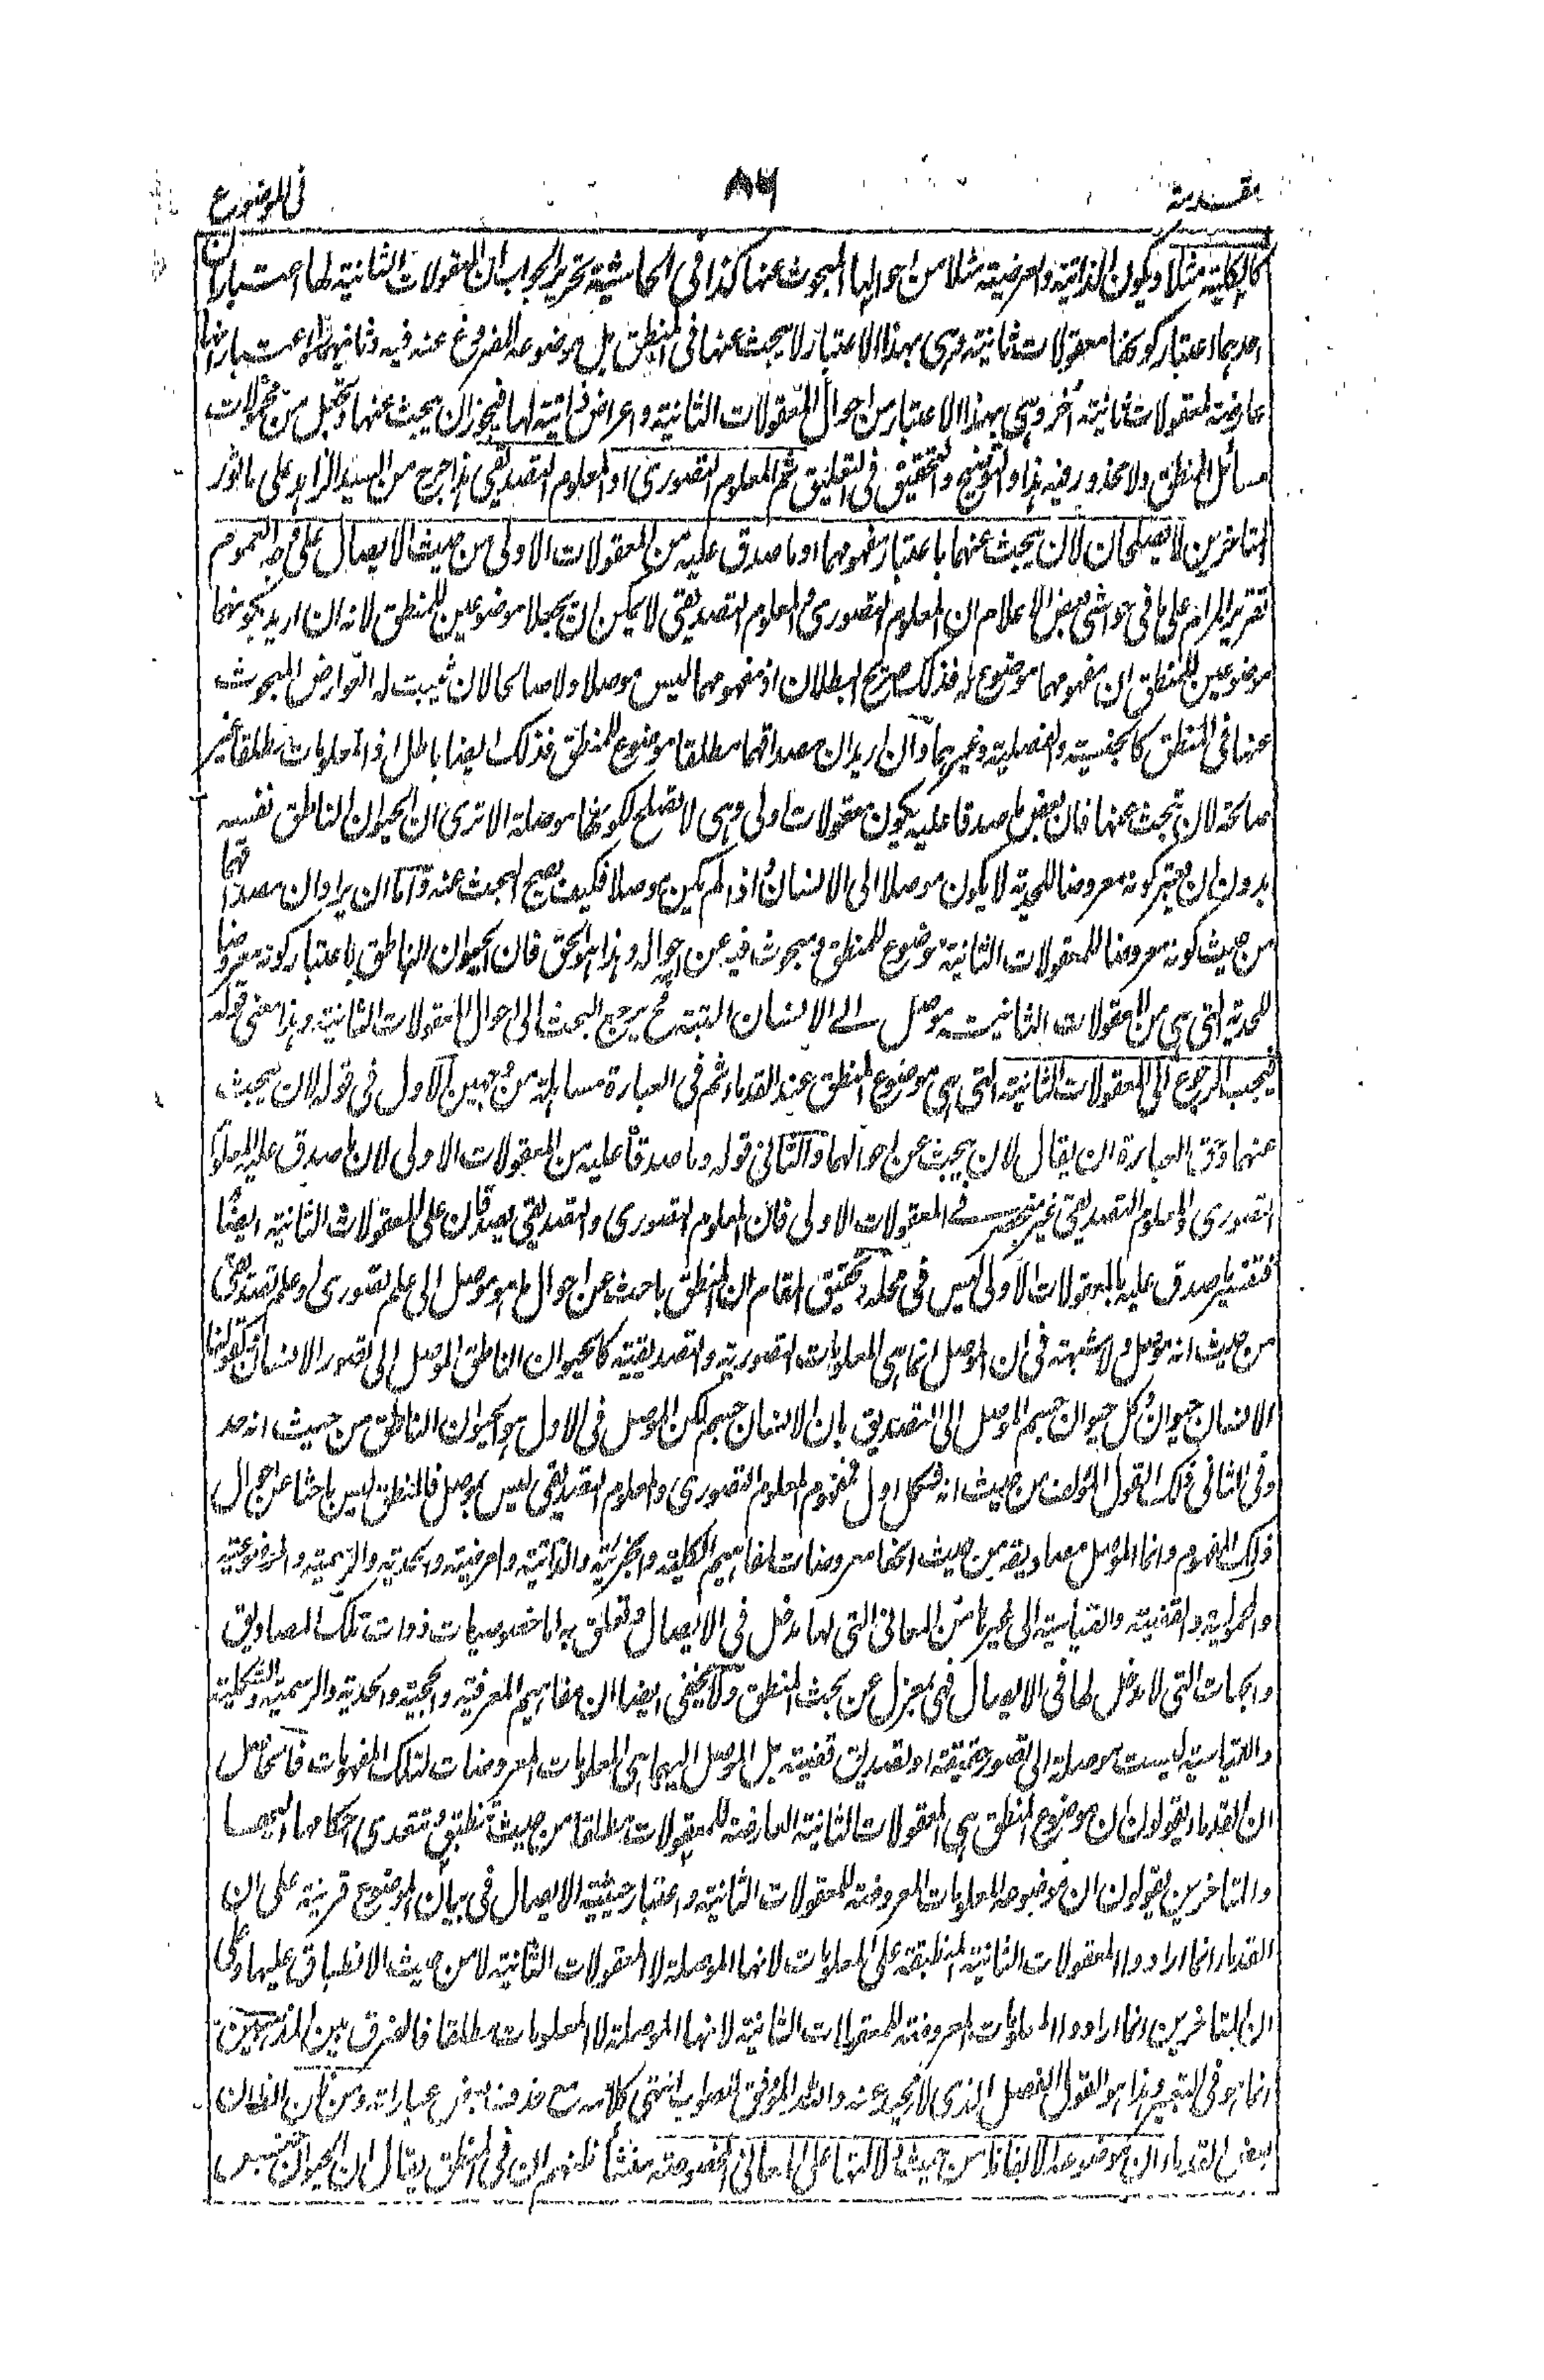 مقدمة
٨٦
فى الموضوع
كالكلية مثلا ويكون الذاتية والعرضية مثلا من احوالها المبحوث عنها كذا فى الحاشية تحرير الجواب ان المعقولات الثانية لها اعتباران
احدهما اعتبار كونها معقولات ثانية وهى بهذا الاعتبار لا يبحث عنها فى المنطق بل موضوعه المفروغ عنه فيه وثانيهما اعتبار انها
عارضة لمعقولات ثانية أخر وهى بهذا الاعتبار من احوال المعقولات الثانية واعراض ذاتية لها فيجوز ان يبحث عنها وتجعل من محمولات
مسائل المنطق ولا محذور فيه هذا والتوضيح والتحقيق فى التعليق ثم المعلوم التصورى او المعلوم التصديقى هذا جرح من السيد الزاهد على ما اثر
المتاخرين لا يصلحان لان يبحث عنهما باعتبار مفهومهما او ما صدق عليه من المعقولات الاولى من حيث الايصال على وجه العموم
تقرير المرام على ما فى حواشى بعض الاعلام ان المعلوم التصورى والمعلوم التصديقى لا يمكن ان يجعلا موضوعين للمنطق لانه ان اريد بكونهما
موضوعين للمنطق ان مفهومهما موضوع له فذلك صريح البطلان اذ مفهومهما ليس موصلا ولا صالحا لان يثبت له العوارض المبحوث
عنها فى المنطق كالجنسية والفصلية وغيرهما وان اريد ان مصداقهما مطلقا موضوع للمنطق فذلك ايضا باطل اذ المعلومات مطلقا غير
صالحة لان تبحث عنها فان بعض ما صدقا عليه يكون معقولات اولى وهى لا تصلح لكونها موصلة الا ترى ان الحيوان الناطق نفسه
بدون ان يعتبر كونه معروضا للحدية لا يكون موصلا الى الانسان واذا لم يكن موصلا فكيف يصح البحث عنه واما ان يراد ان مصداقهما
من حيث كونه معروضا للمعقولات الثانية موضوع للمنطق ومبحوث فيه عن احواله وهذا هو الحق فان الحيوان الناطق باعتبار كونه معروضا
للحدية التى هى من المعقولات الثانية موصل الى الانسان البتة فح يرجع البحث الى احوال المعقولات الثانية وهذا معنى قوله
فيجب الرجوع الى المعقولات الثانية التى هى موضوع المنطق عند القدماء ثم فى العبارة مساهلة من وجهين الاول فى قوله لان يبحث
عنهما وحق العبارة ان يقال لان يبحث عن احوالهما والثانى قوله وما صدقا عليه من المعقولات الاولى لان ما صدق عليه المعلوم
التصورى والمعلوم التصديقى غير منحصر فى المعقولات الاولى فان المعلوم التصورى والتصديقى يصدقان على المعقولات الثانية ايضا
فتفسير ما صدق عليه بالمعقولات الاولى ليس فى محله وتحقيق المقام ان المنطق باحث عن احوال ما هو موصل الى علم تصورى وعلم تصديقى
من حيث انه موصل ولا شبهة فى ان الموصل انما هى المعلومات التصورية والتصديقية كالحيوان الناطق الموصل الى تصور الانسان وكقولنا
الانسان حيوان وكل حيوان جسم الموصل الى التصديق بان الانسان جسم لكن الموصل فى الاول هو الحيوان الناطق من حيث انه حد
وفى الثانى ذلك القول المؤلف من حيث انه شكل اول فمفهوم المعلوم التصورى والمعلوم التصديقى ليس بموصل فالمنطق ليس باحثا عن احوال
ذلك المفهوم وانما الموصل مصاديقه من حيث انها معروضات لمفاهيم الكلية والجزئية والذاتية والعرضية والحدية والرسمية والموضوعية
والمحمولية والقضية والقياسية الى غيرها من المعانى التى لها مدخل فى الايصال وتعلق به اما خصوصيات ذوات تلك المصاديق
والجهات التى لا مدخل لها فى الايصال فهى بمعزل عن بحث المنطق ولا يخفى ايضا ان مفاهيم المعرفية والحجية والحدية والرسمية والشكلية
والقياسية ليست موصلة الى تصور حقيقة او تصديق قضية بل الموصل اليهما هى المعلومات المعروضات لتلك المفهومات فالحاصل
ان القدماء يقولون ان موضوع المنطق هى المعقولات الثانية العارضة للمعقولات مطلقا من حيث تنطبق وتتعدى احكامها اليها
والمتاخرين يقولون ان موضوعه المعلومات المعروضة للمعقولات الثانية واعتبار حيثية الايصال فى بيان الموضوع قرينة على ان
القدماء انما ارادوا المعقولات الثانية المنطبقة على المعلومات لانها الموصلة لا المعقولات الثانية لا من حيث الانطباق عليها وعلى
ان المتاخرين انما ارادوا المعلومات المعروضة للمعقولات الثانية لانها الموصلة لا المعلومات مطلقا فالفرق بين المذهبين
انما هو فى التعبير وهذا هو القول الفصل الذى لا محيد عنه والله الموفق للصواب انتهى كلامه مع حذف بعض عباراته ومن ظن الظان
بعض القدماء ان موضوعه الالفاظ من حيث دلالتها على المعانى المخصوصة منشأ ظنهم ان فى المنطق يقال ان الحيوان جنس